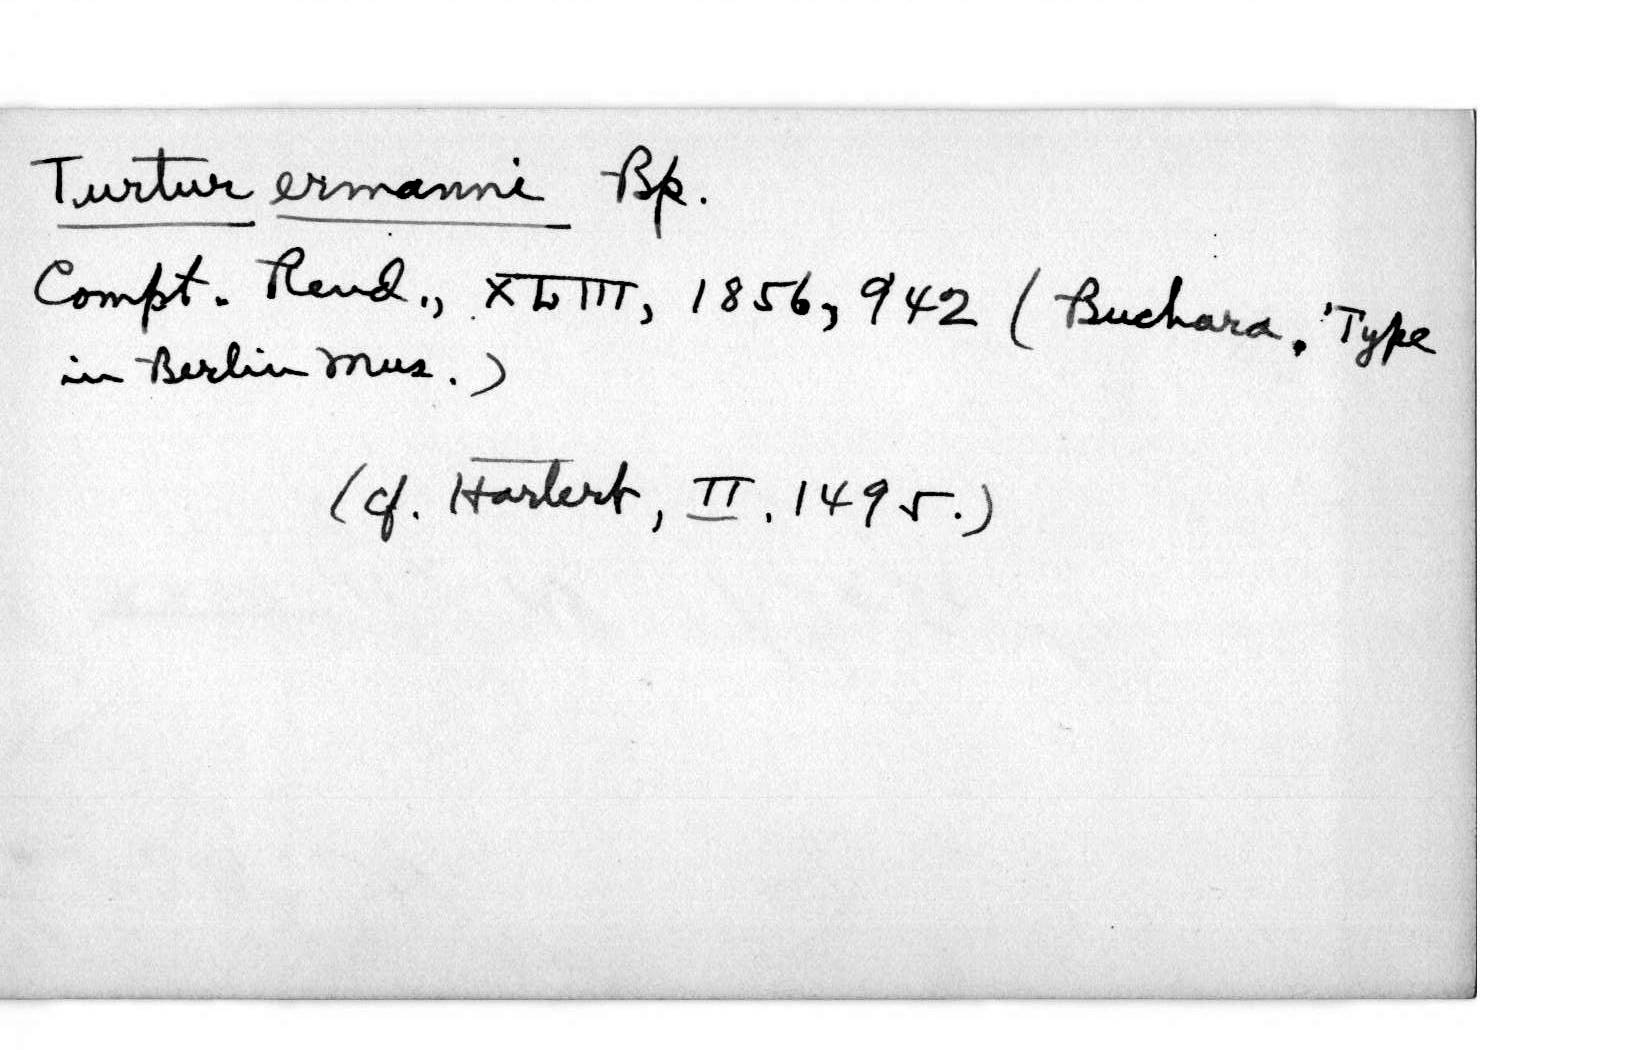 Turtur ermanni Bp.
Compt. Rend., XLIII, 1856, 942 (Buchara. Type
in Berlin Mus.)
(cf. Hartert, II. 1495.)